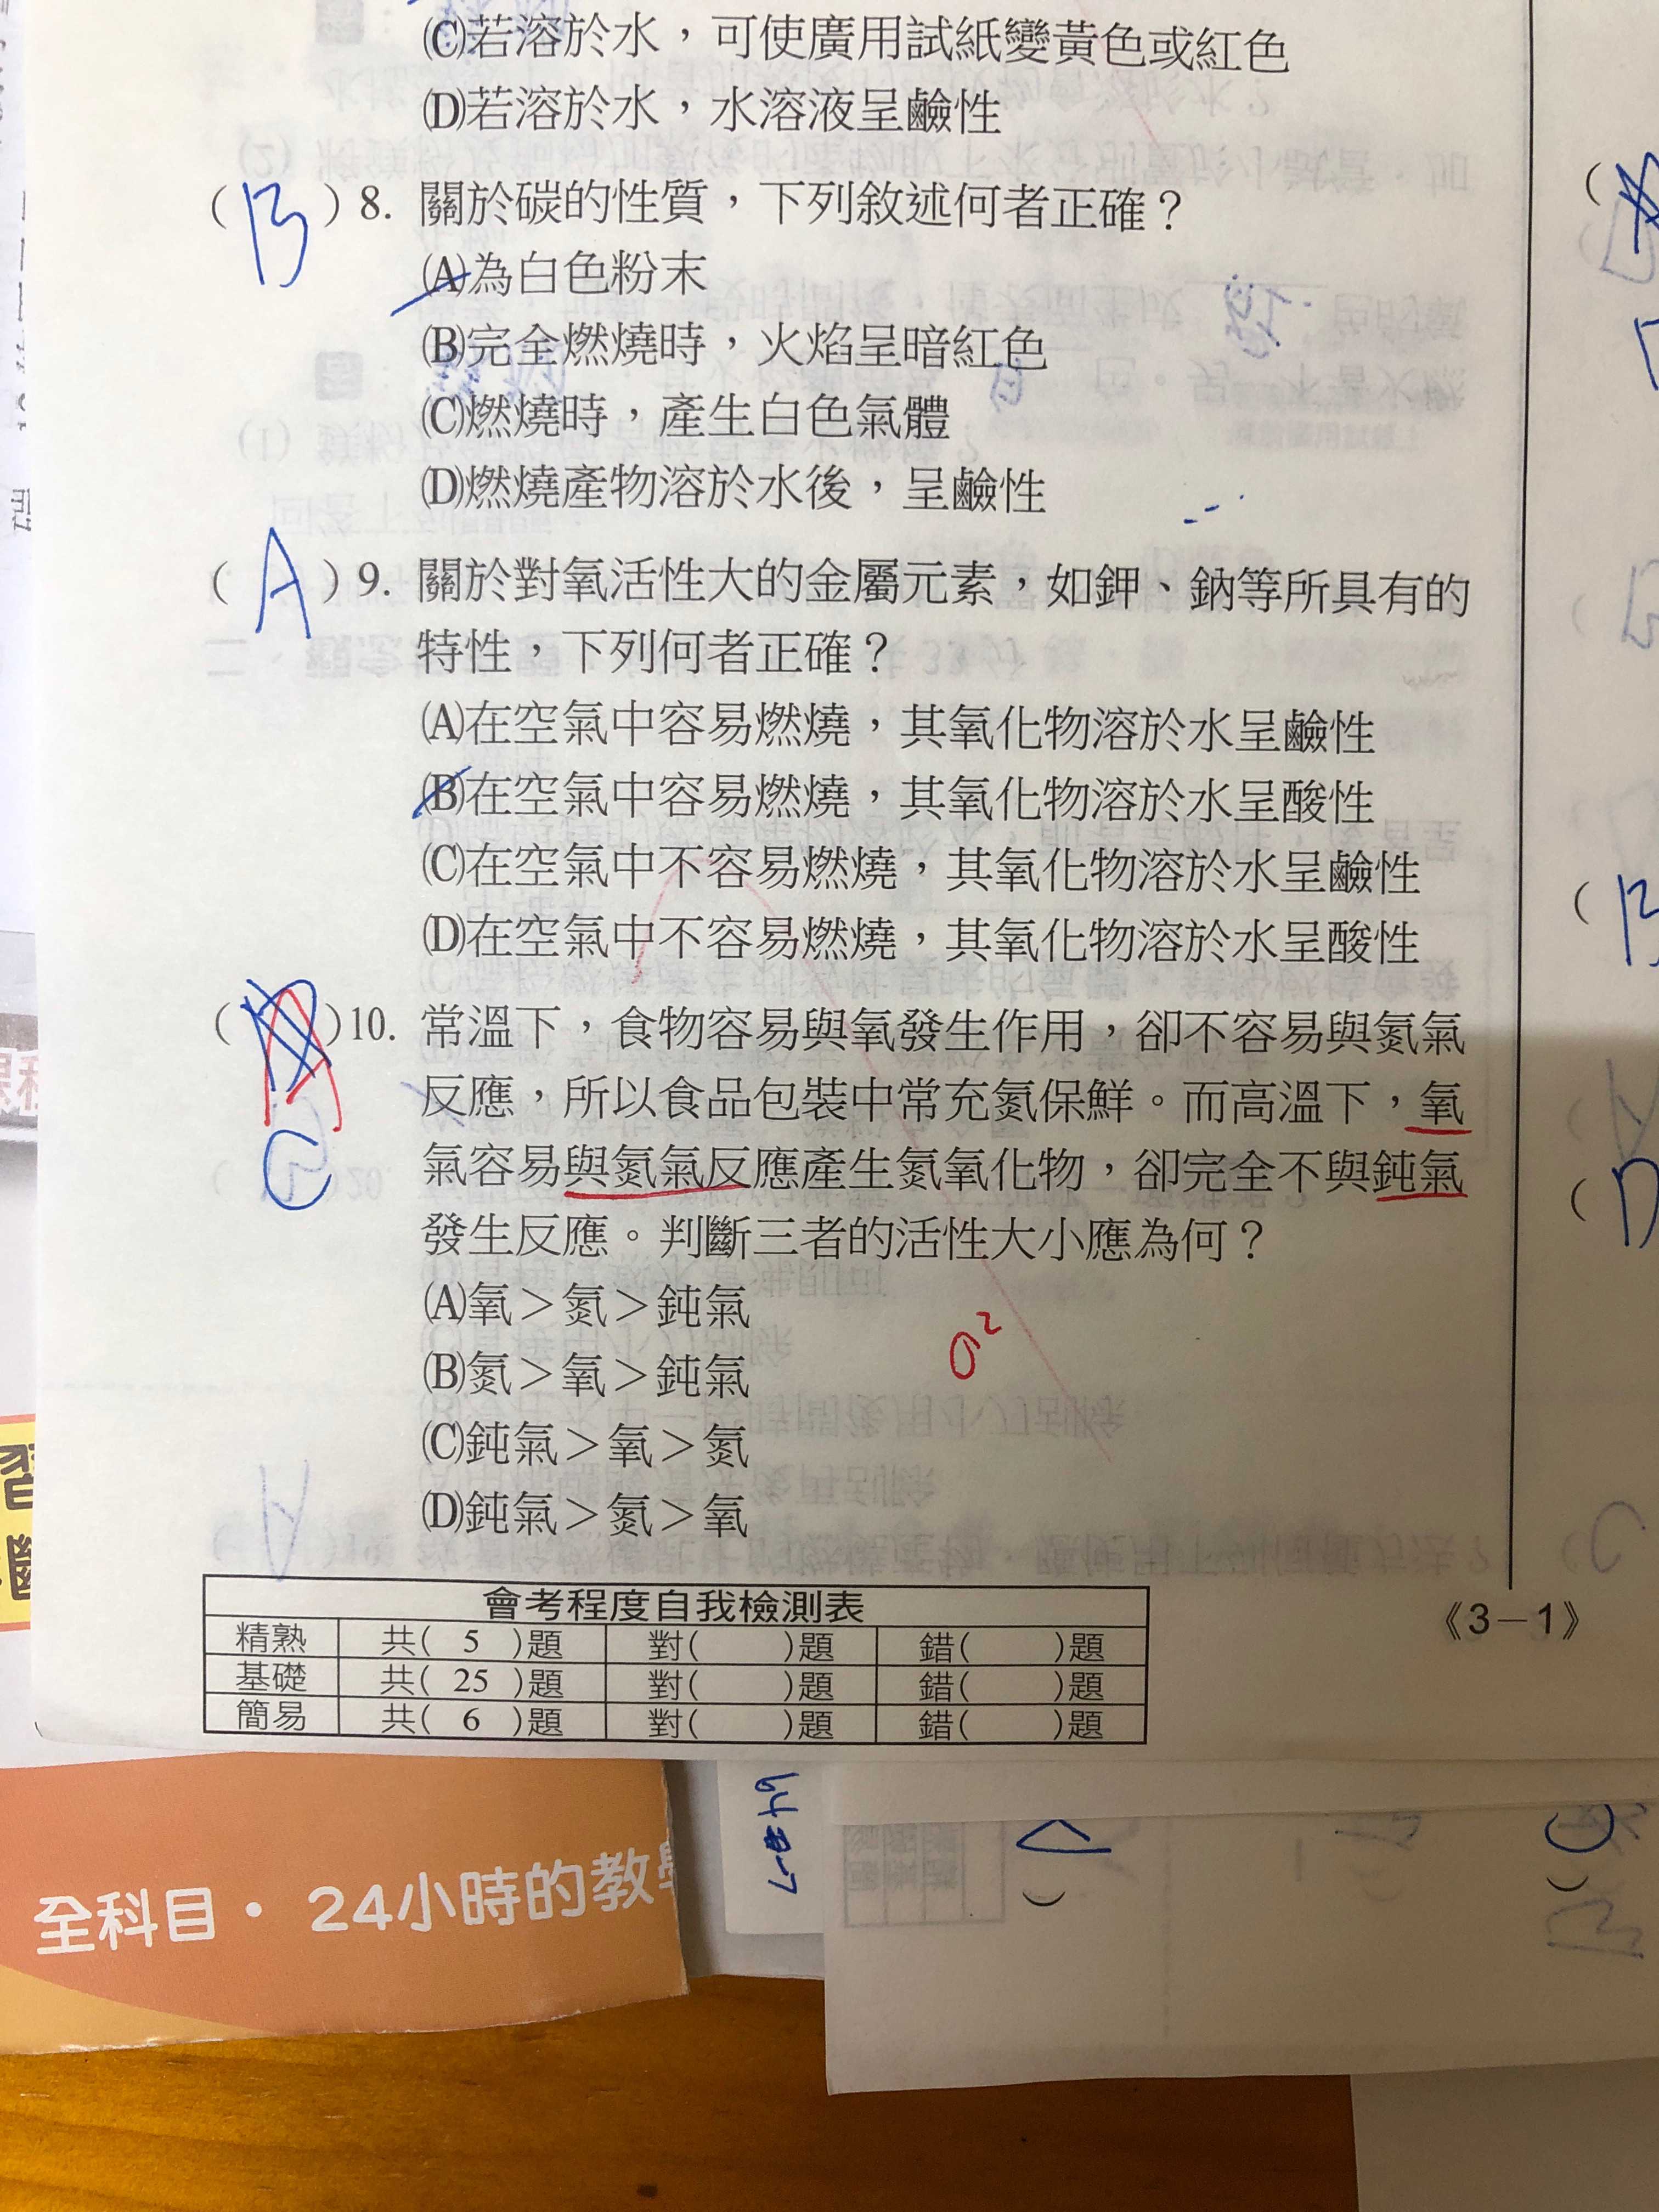 (C)若溶於水，可使廣用試紙變黃色或紅色
(D)若溶於水，水溶液呈鹼性
( B )8. 關於碳的性質，下列敘述何者正確？
(A)為白色粉末
(B)完全燃燒時，火焰呈暗紅色
(C)燃燒時，產生白色氣體
(D)燃燒產物溶於水後，呈鹼性
( A )9. 關於對氧活性大的金屬元素，如鉀、鈉等所具有的
特性，下列何者正確？
(A)在空氣中容易燃燒，其氧化物溶於水呈鹼性
(B)在空氣中容易燃燒，其氧化物溶於水呈酸性
(C)在空氣中不容易燃燒，其氧化物溶於水呈鹼性
(D)在空氣中不容易燃燒，其氧化物溶於水呈酸性
( A )10. 常溫下，食物容易與氧發生作用，卻不容易與氮氣
反應，所以食品包裝中常充氮保鮮。而高溫下，氧
C
氣容易與氮氣反應產生氮氧化物，卻完全不與鈍氣
發生反應。判斷三者的活性大小應為何？
(A)氧＞氮＞鈍氣
(B)氮＞氧＞鈍氣
(C)鈍氣＞氧＞氮
(D)鈍氣＞氮＞氧
會考程度自我檢測表
精熟 共( 5 )題 對( )題 錯( )題
基礎 共( 25 )題 對( )題 錯( )題
簡易 共( 6 )題 對( )題 錯( )題
《3－1》
B
D
全科目・24小時的教